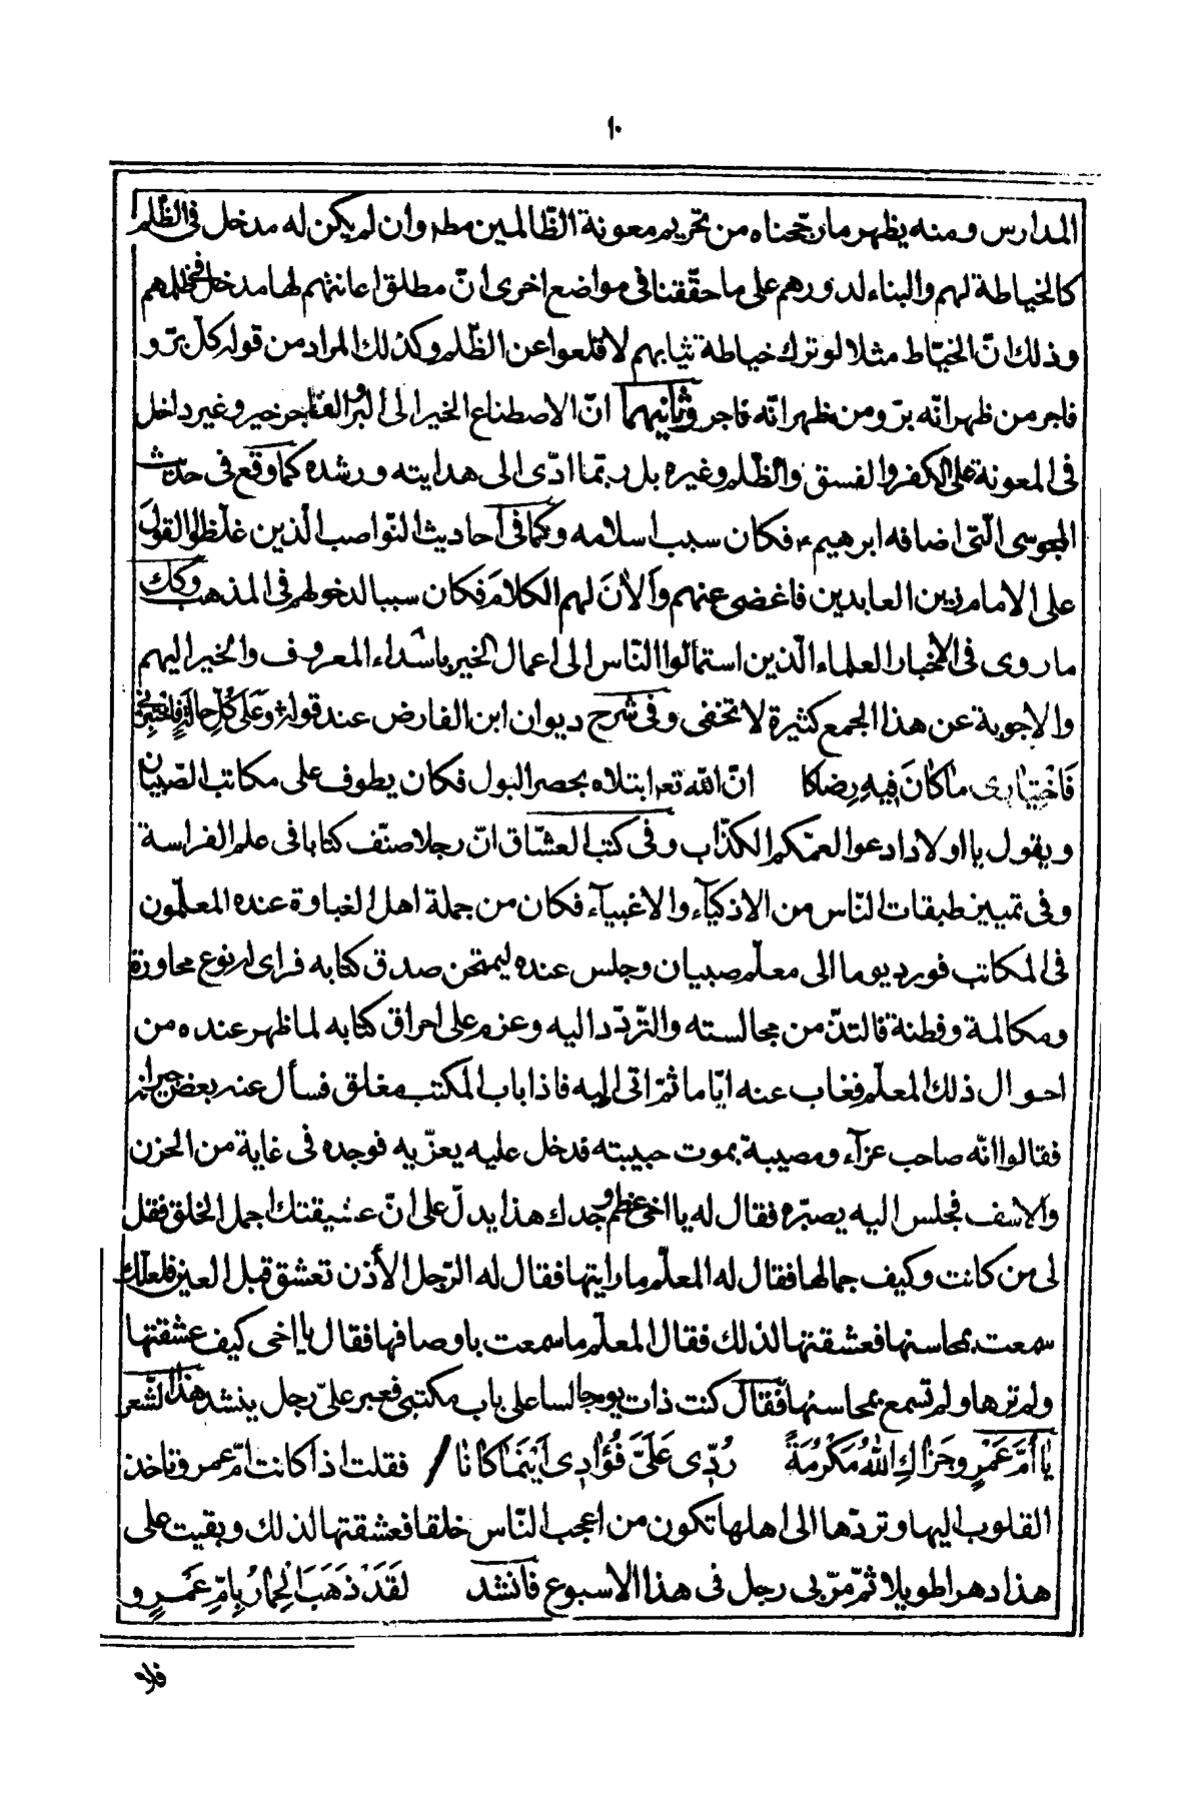 ١٠
المدارس ومنه يظهر ما رجّحناه من تحريم معونة الظّالمين مطه وان لم يكن له مدخل فى الظّلم
كالخياطة لهم والبناء لدورهم على ما حقّقنا فى مواضع اخرى انّ مطلق اعانتهم لها مدخل فى ظلمهم
وذلك انّ الخيّاط مثلا لو ترك خياطة ثيابهم لاقلعوا عن الظّلم وكذلك المراد من قوله كلّ برّ و
فاجر من ظهر انّه برّ ومن ظهر انّه فاجر وثانيهما انّ الاصطناع الخير الى البرّ والفاجر خير وغير داخل
فى المعونة على الكفر والفسق والظّلم وغيره بل ربّما ادّى الى هدايته ورشده كما وقع فى حديث
المجوسى الّتى اضافه ابرهيم ع فكان سبب اسلامه وكما فى احاديث النّواصب الّذين غلّظوا القول
على الامام زين العابدين فاغضى عنهم وألان لهم الكلام فكان سببا لدخولهم فى المذهب وكك
ما روى فى الاخبار العلماء الّذين استمالوا النّاس الى اعمال الخير باسداء المعروف والخير اليهم
والاجوبة عن هذا الجمع كثيرة لا تخفى وفى شرح ديوان ابن الفارض عند قوله وَعَلى كُلِّ حالَةٍ
فَاخْتِبارى ماكانَ فيهِ رِضاكا انّ اللّه تعه ابتلاه بحصر البول فكان يطوف على مكاتب الصّبيان
ويقول يا اولاد ادعوا لعمّكم الكذّاب وفى كتب العشّاق انّ رجلا صنّف كتابا فى علم الفراسة
وفى تمييز طبقات النّاس من الاذكيآء والاغبيآء فكان من جملة اهل الغباوة عنده المعلّمون
فى المكاتب فورد يوما الى معلّم صبيان وجلس عنده ليمتحن صدق كتابه فراى له نوع محاورة
ومكالمة وفطنة فالتذّ من مجالسته والتّردّد اليه وعزم على احراق كتابه لما ظهر عنده من
احوال ذلك المعلّم فغاب عنه ايّاما ثمّ اتى اليه فاذا باب المكتب مغلق فسأل عنه بعض جيرانه
فقالوا انّه صاحب عزآء ومصيبة بموت حبيبته فدخل عليه يعزّيه فوجده فى غاية من الحزن
والاسف فجلس اليه يصبّره فقال له يا اخى عظم وجدك هذا يدلّ على انّ عشيقتك اجمل الخلق فقل
لى من كانت وكيف جمالها فقال له المعلّم ما رايتها فقال له الرّجل الأذن تعشق قبل العين فلعلّك
سمعت بمحاسنها فعشقتها لذلك فقال المعلّم ما سمعت باوصافها فقال يا اخى كيف عشقتها
ولم ترها ولم تسمع بمحاسنها فقال كنت ذات يوم جالسا على باب مكتبى فعبر علىّ رجل ينشد هذا الشّعر
يا أُمَّ عَمْرٍو جَزاكِ اللّهُ مَكْرُمَةً رُدّى عَلَىَّ فُؤادى أَيْنَما كانا / فقلت اذا كانت امّ عمرو تاخذ
القلوب اليها وتردّها الى اهلها تكون من اعجب النّاس خلقا فعشقتها لذلك وبقيت على
هذا دهرا طويلا ثمّ مرّ بى رجل فى هذا الاسبوع فانشد لَقَدْ ذَهَبَ الْحِمارُ بِأُمِّ عَمْرٍو و
فلا